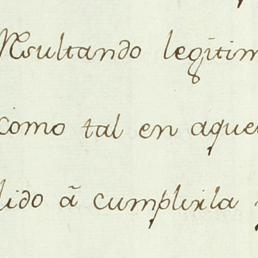 Resultando legitim
como tal en aque
dido ã cumplirla